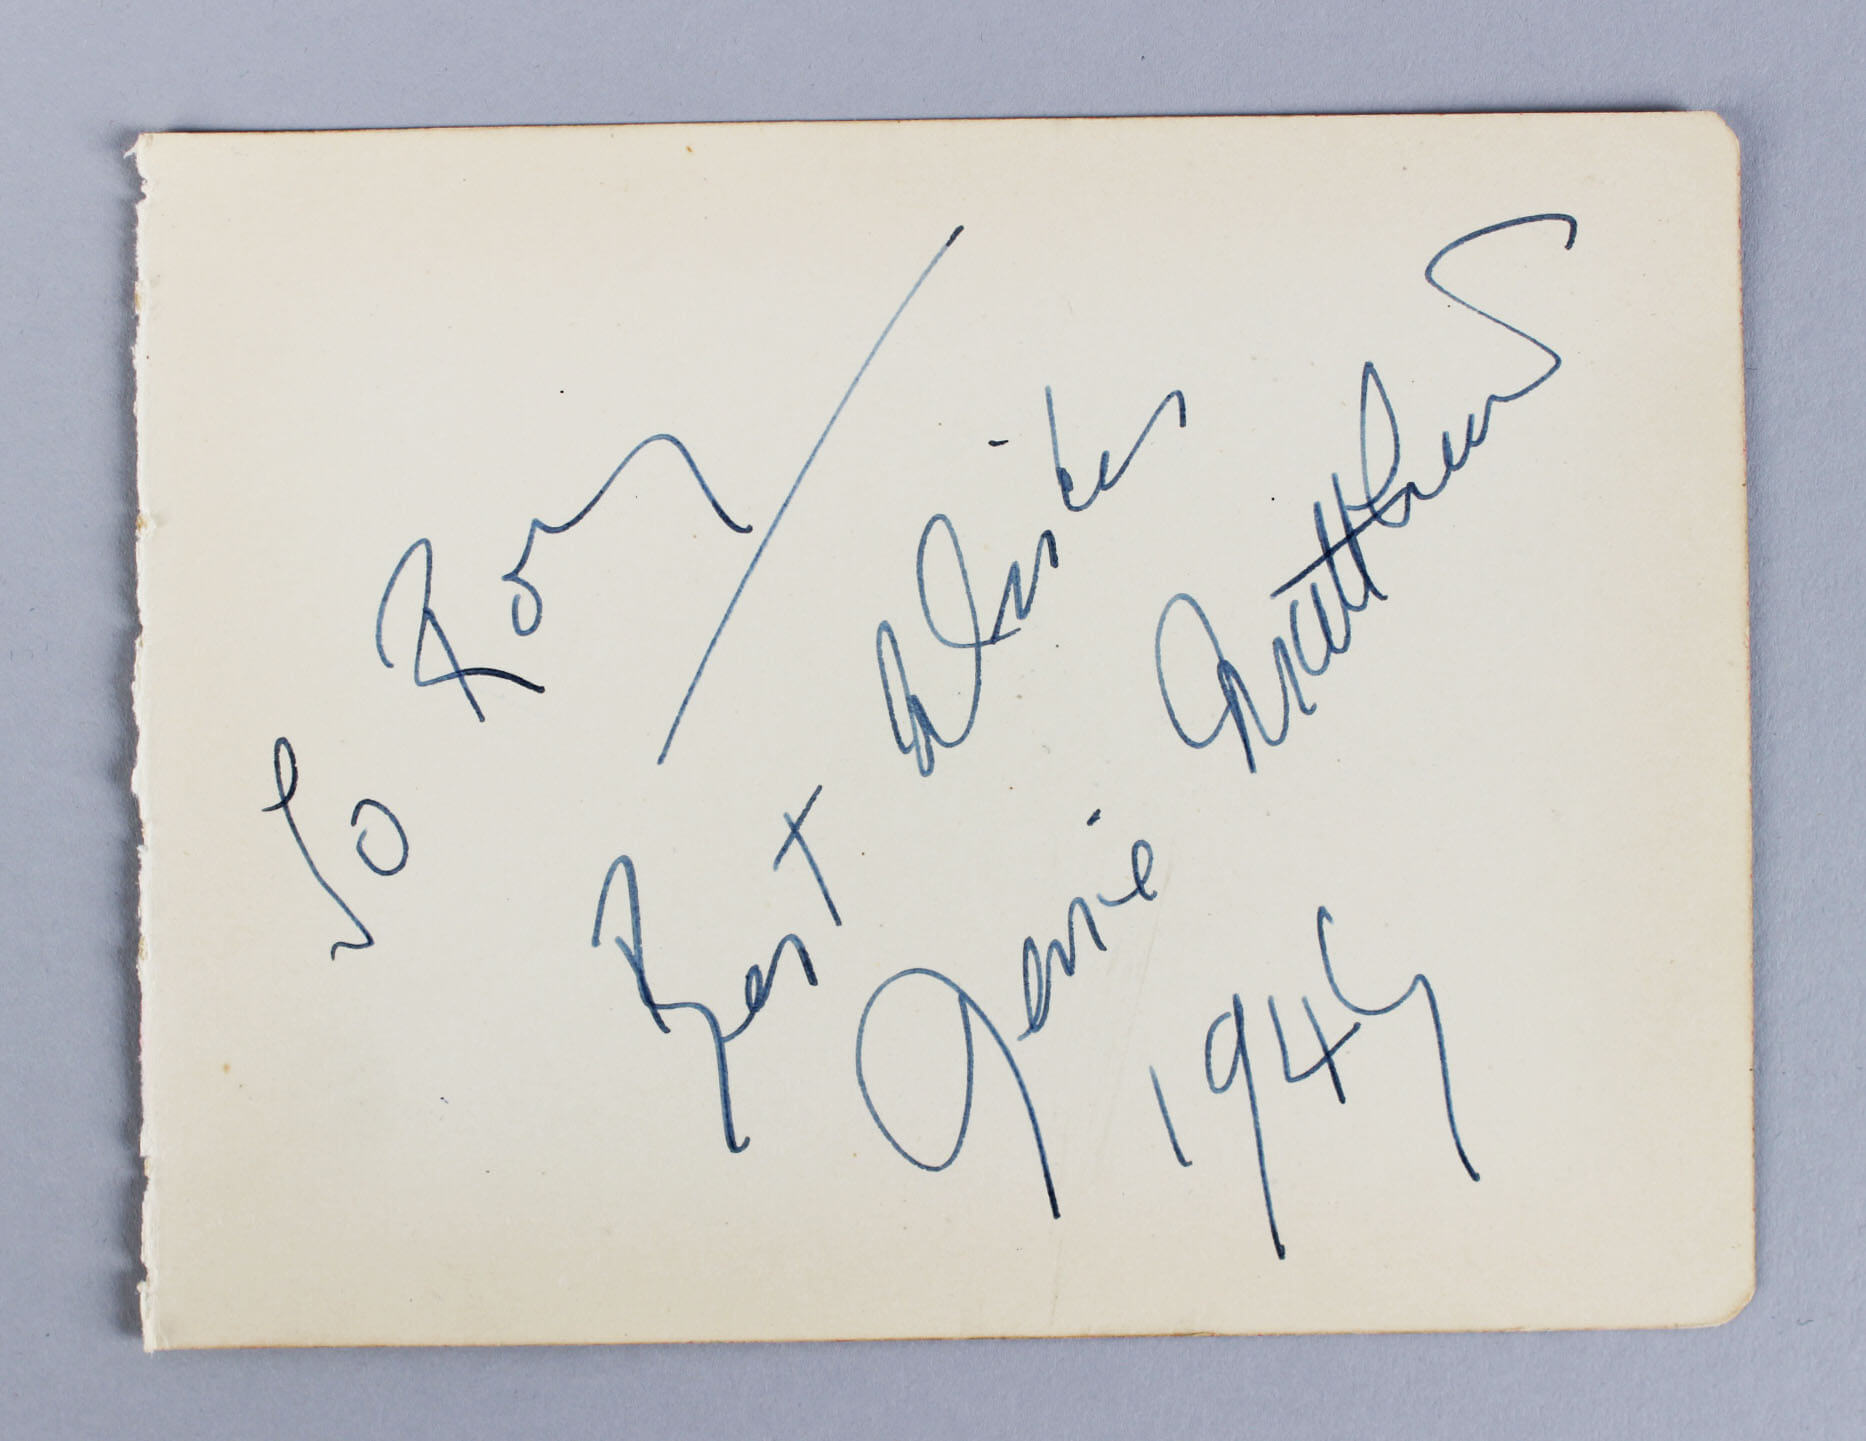 To Rory
Best Wishes
Jessie Matthews
1947